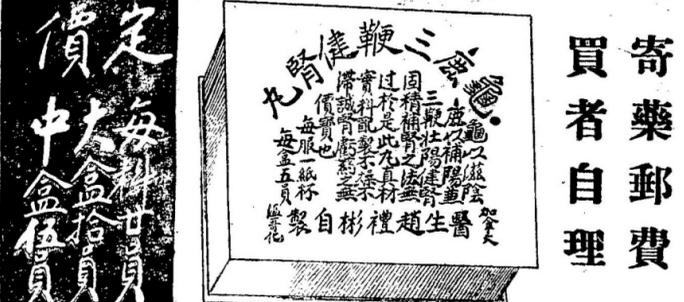 寄藥郵費
買者自理
龜鹿三鞭健腎丸
龜以滋陰
鹿以補陽兼
三鞭壯陽建腎
固精補腎之法無
过於是此丸真材
實料配製不燥不
滯誠腎虧葯之無
價寶也
每服一紙杯
每盒五員
加拿大
醫生趙禮彬自製
溫哥化
定價
每料廿員
大盒拾員
中盒伍員